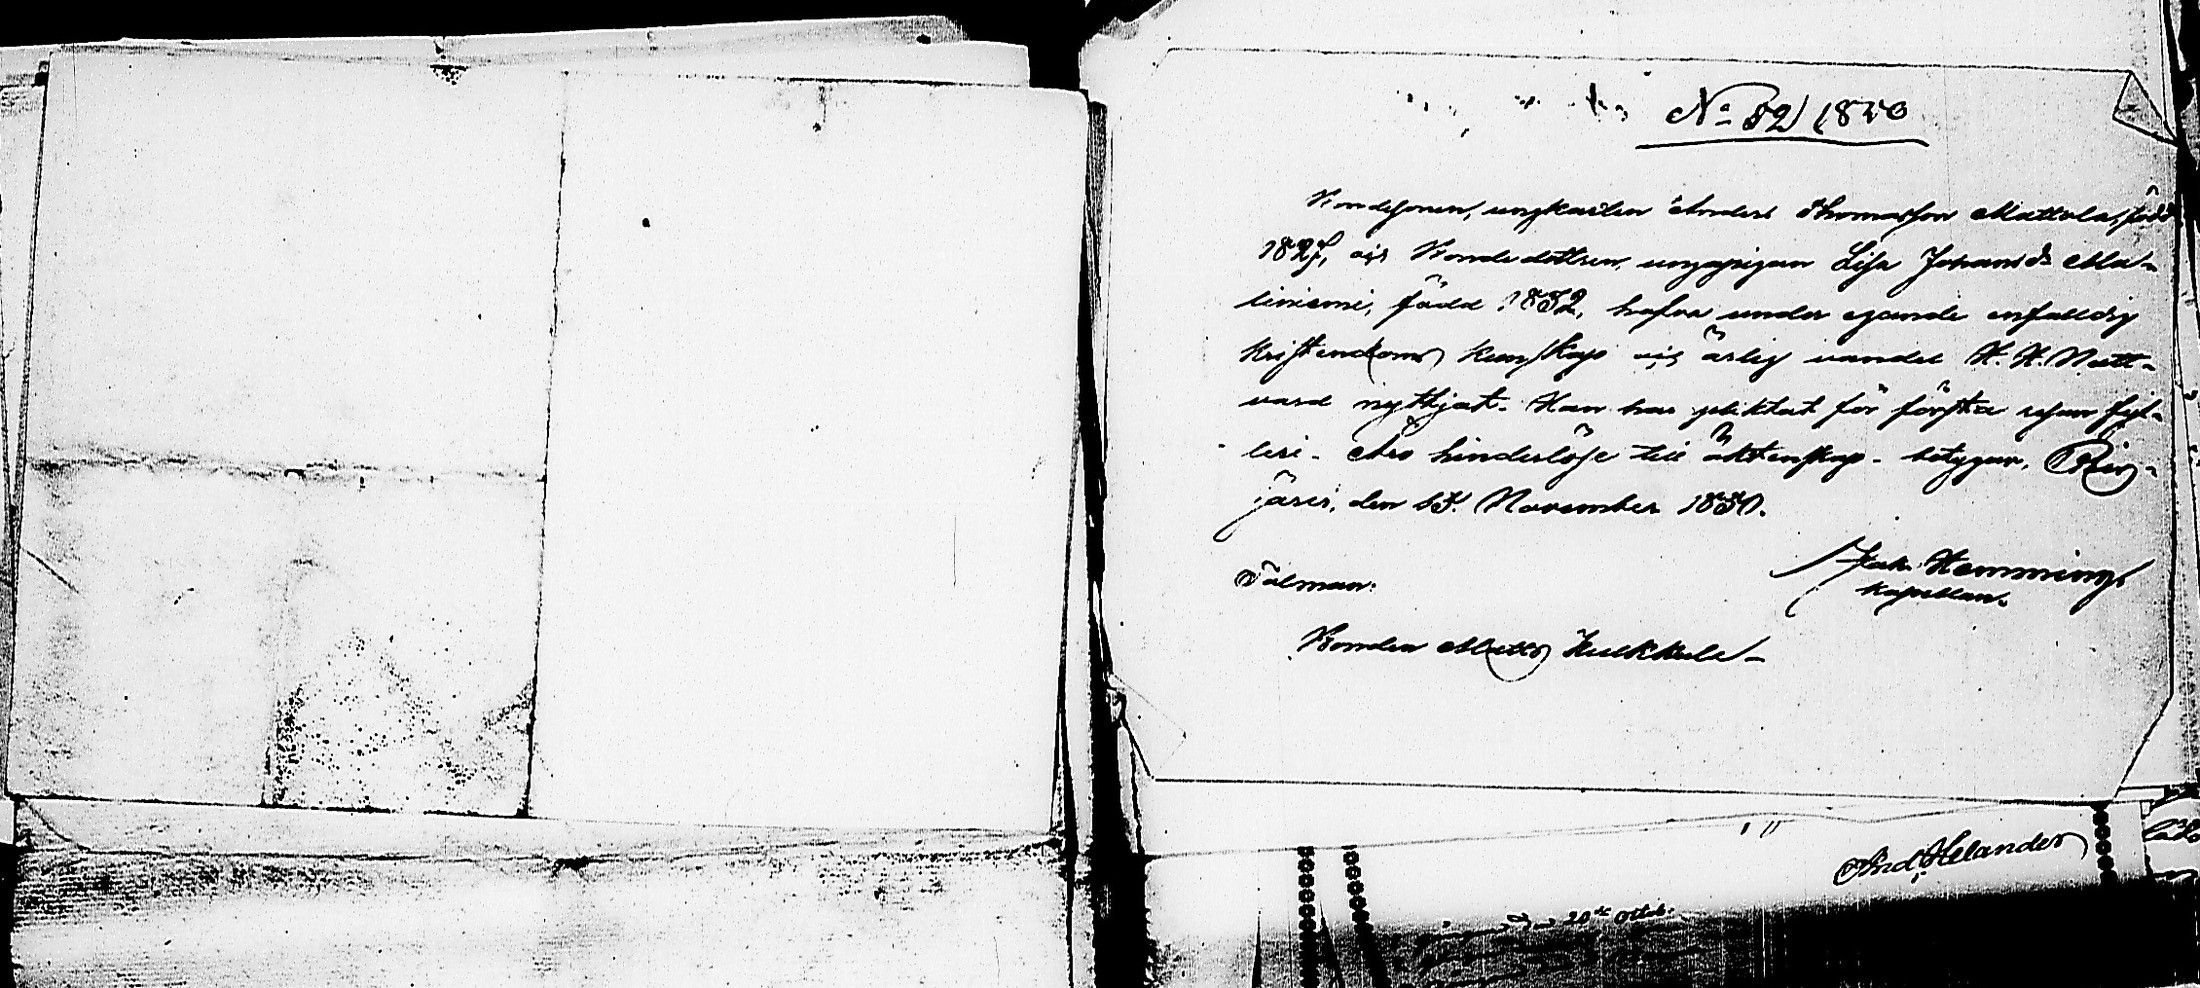 No 52/1850
Bondesonen, ungkarlen Anders Thomasson Mattola, född
1827, och Bondedottren, ungapigan Lisa Johansdr Ma-
liniemi, född 1832, hafva under egande enfalldig
Kristendoms kunskap och ärlig vandel H. H. Natt-
vard nyttjat. Han har pliktat för första resan fyl-
leri. Äro hinderlöse till äktenskap. betygar,
järvi, den 15. November 1850.
Jak. Hemming
Kapellan.
Talman:
Bonden Matts Kukkula
And. Helander
20de Octob.